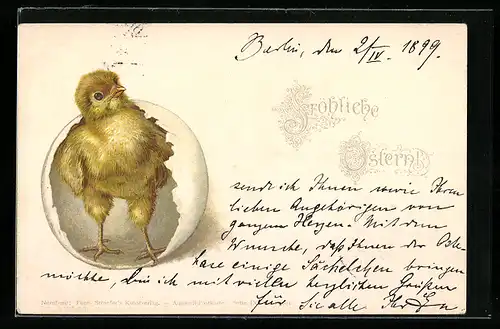 Berlin, den 2/IV. 1899.
Fröhliche
Ostern!
sende ich Ihnen sowie Ihren
lieben Angehörigen von
ganzem Herzen. Mit dem
Wunsche, daß Ihnen der Oster-
hase einige Sächelchen bringen
möchte, bin ich mit vielen herzlichen Grüßen
für Sie alle Ihr